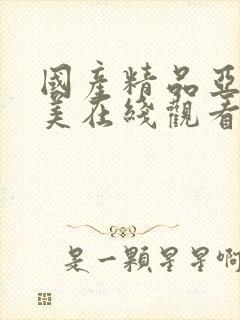 國產精品亞
美在綫觀看
是一顆星星啊